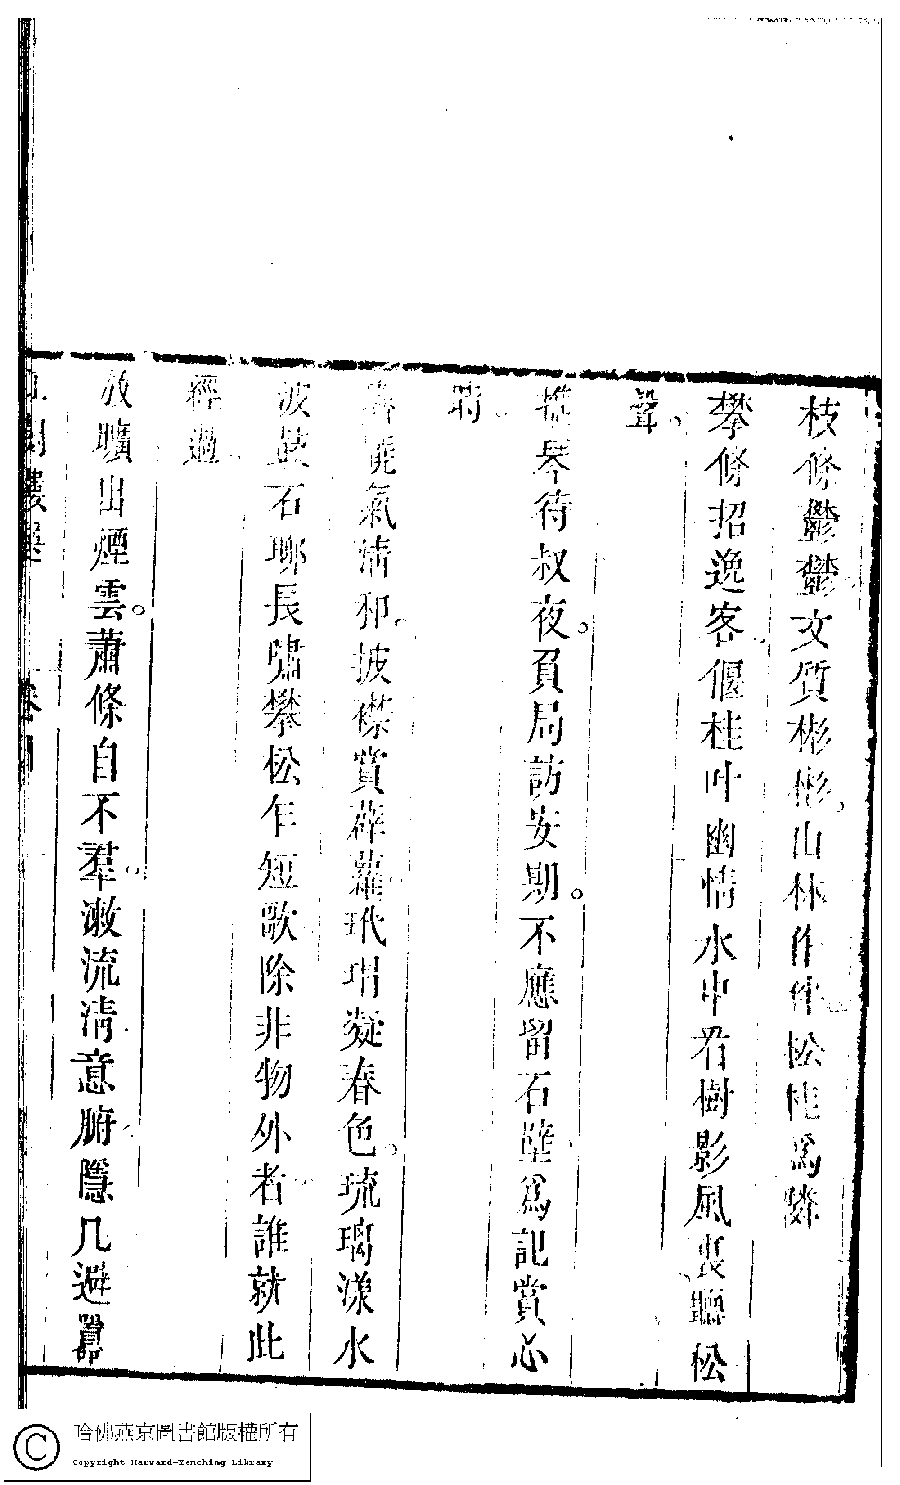 枝條鬱鬱文質彬彬山林作伴松桂爲隣
攀條招逸客偃桂叶幽情水中看樹影風裏聽松
聲
攜琴待叔夜負局訪安期不應留石壁爲記賞心
時
霽曉氣清和披襟賞薜蘿玳瑁凝春色琉璃漾水
波跂石聊長嘯攀松乍短歌除非物外者誰就此
經過
放曠出煙雲蕭條自不羣漱流清意腑隱几避囂
卷
哈佛燕京圖書館版權所有
Copyright Harvard-Yenching Library